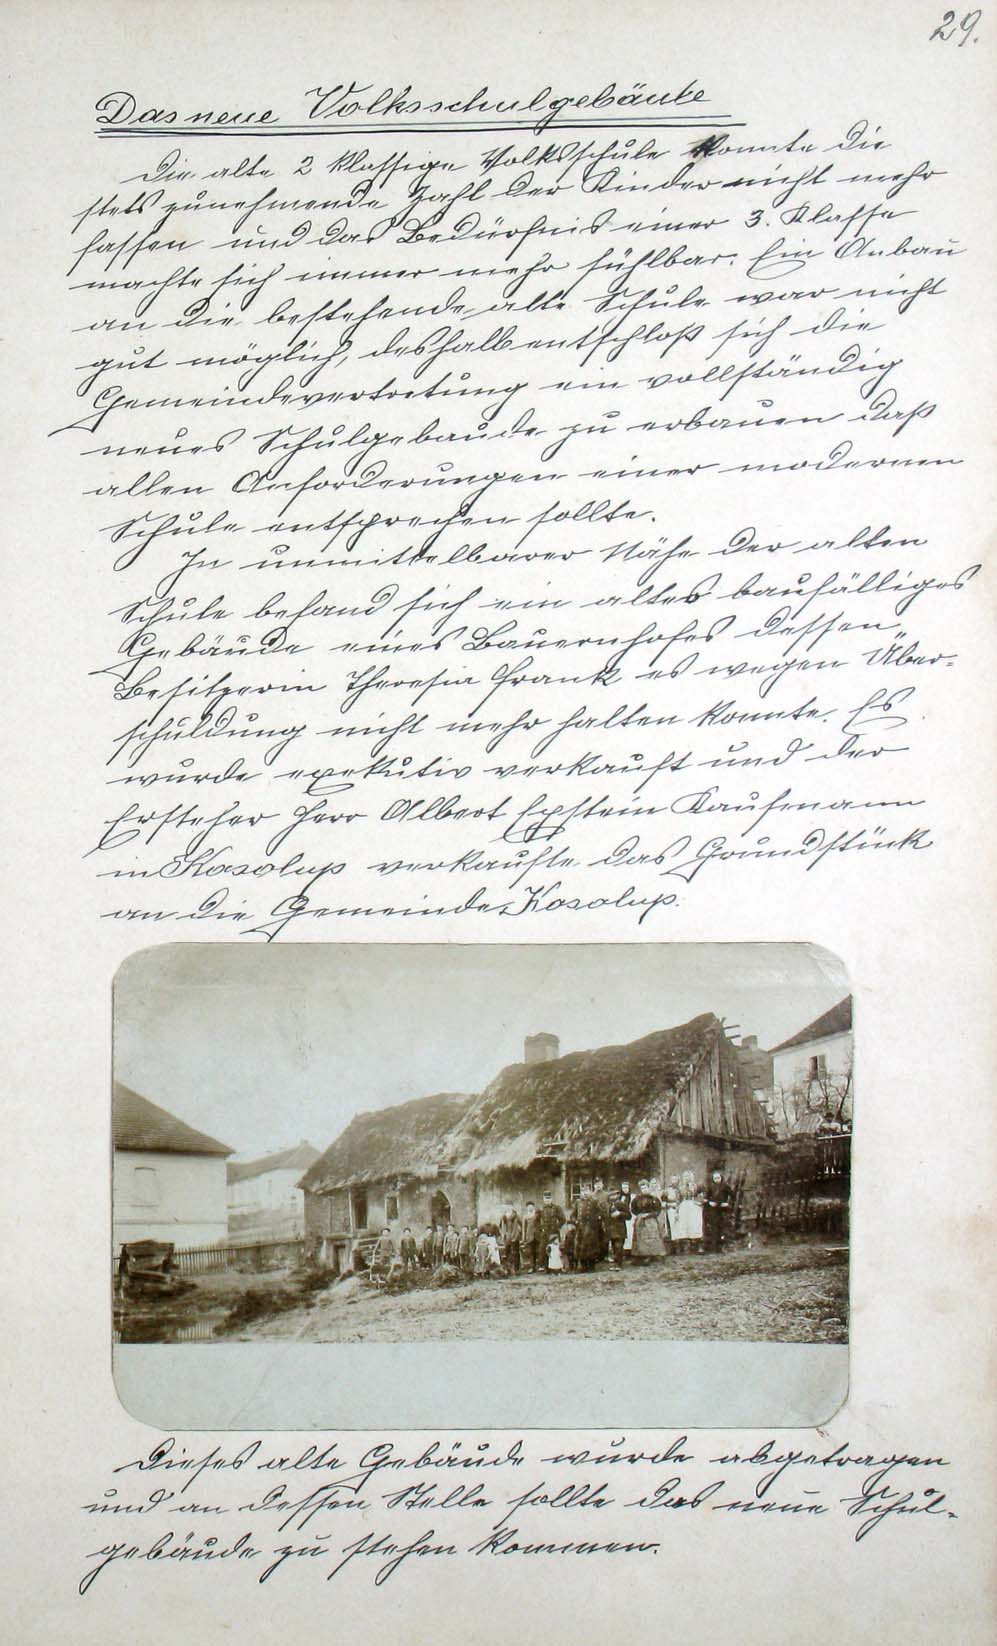 29.
Das neue Volksschulgebäude
Die alte 2 klassige Volksschule konnte die
stets zunehmende Zahl der Kinder nicht mehr
fassen und das Bedürfnis einer 3. Klasse
machte sich immer mehr fühlbar. Ein Anbau
an die bestehende alte Schule war nicht
gut möglich, deshalb entschloß sich die
Gemeindevertretung ein vollständig
neues Schulgebäude zu erbauen daß
allen Anforderungen einer modernen
Schule entsprechen sollte.
In unmittelbarer Nähe der alten
Schule befand sich ein altes baufälliges
Gebäude eines Bauernhofes dessen
Besitzerin Theresia Frank es wegen Über-
schuldung nicht mehr halten konnte. Es
wurde exekutiv verkauft und der
Ersteher Herr Albert Epstein Kaufmann
in Kosolup verkaufte das Grundstück
an die Gemeinde Kosolup.
Dieses alte Gebäude wurde abgetragen
und an dessen Stelle sollte das neue Schul-
gebäude zu stehen kommen.